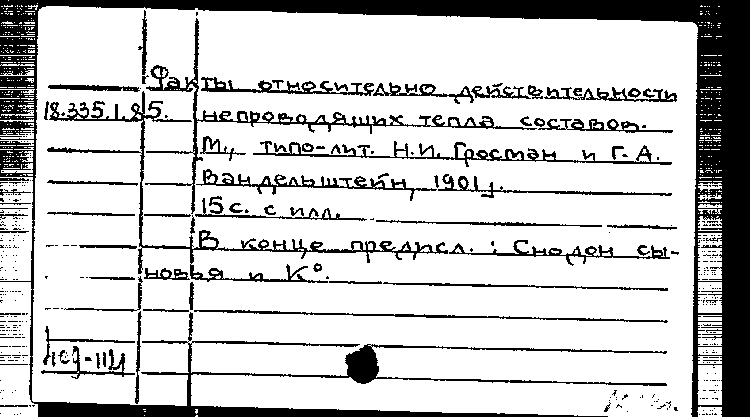 Факты относительно действительности
18.335.1.85. непроводящих тепла составов.
М., типо-лит. Н.И. Гросман и Г.А.
Вандельштейн, 1901 г.
15 с. с илл.
В конце предисл.: Снодон сы-
новья и К°.